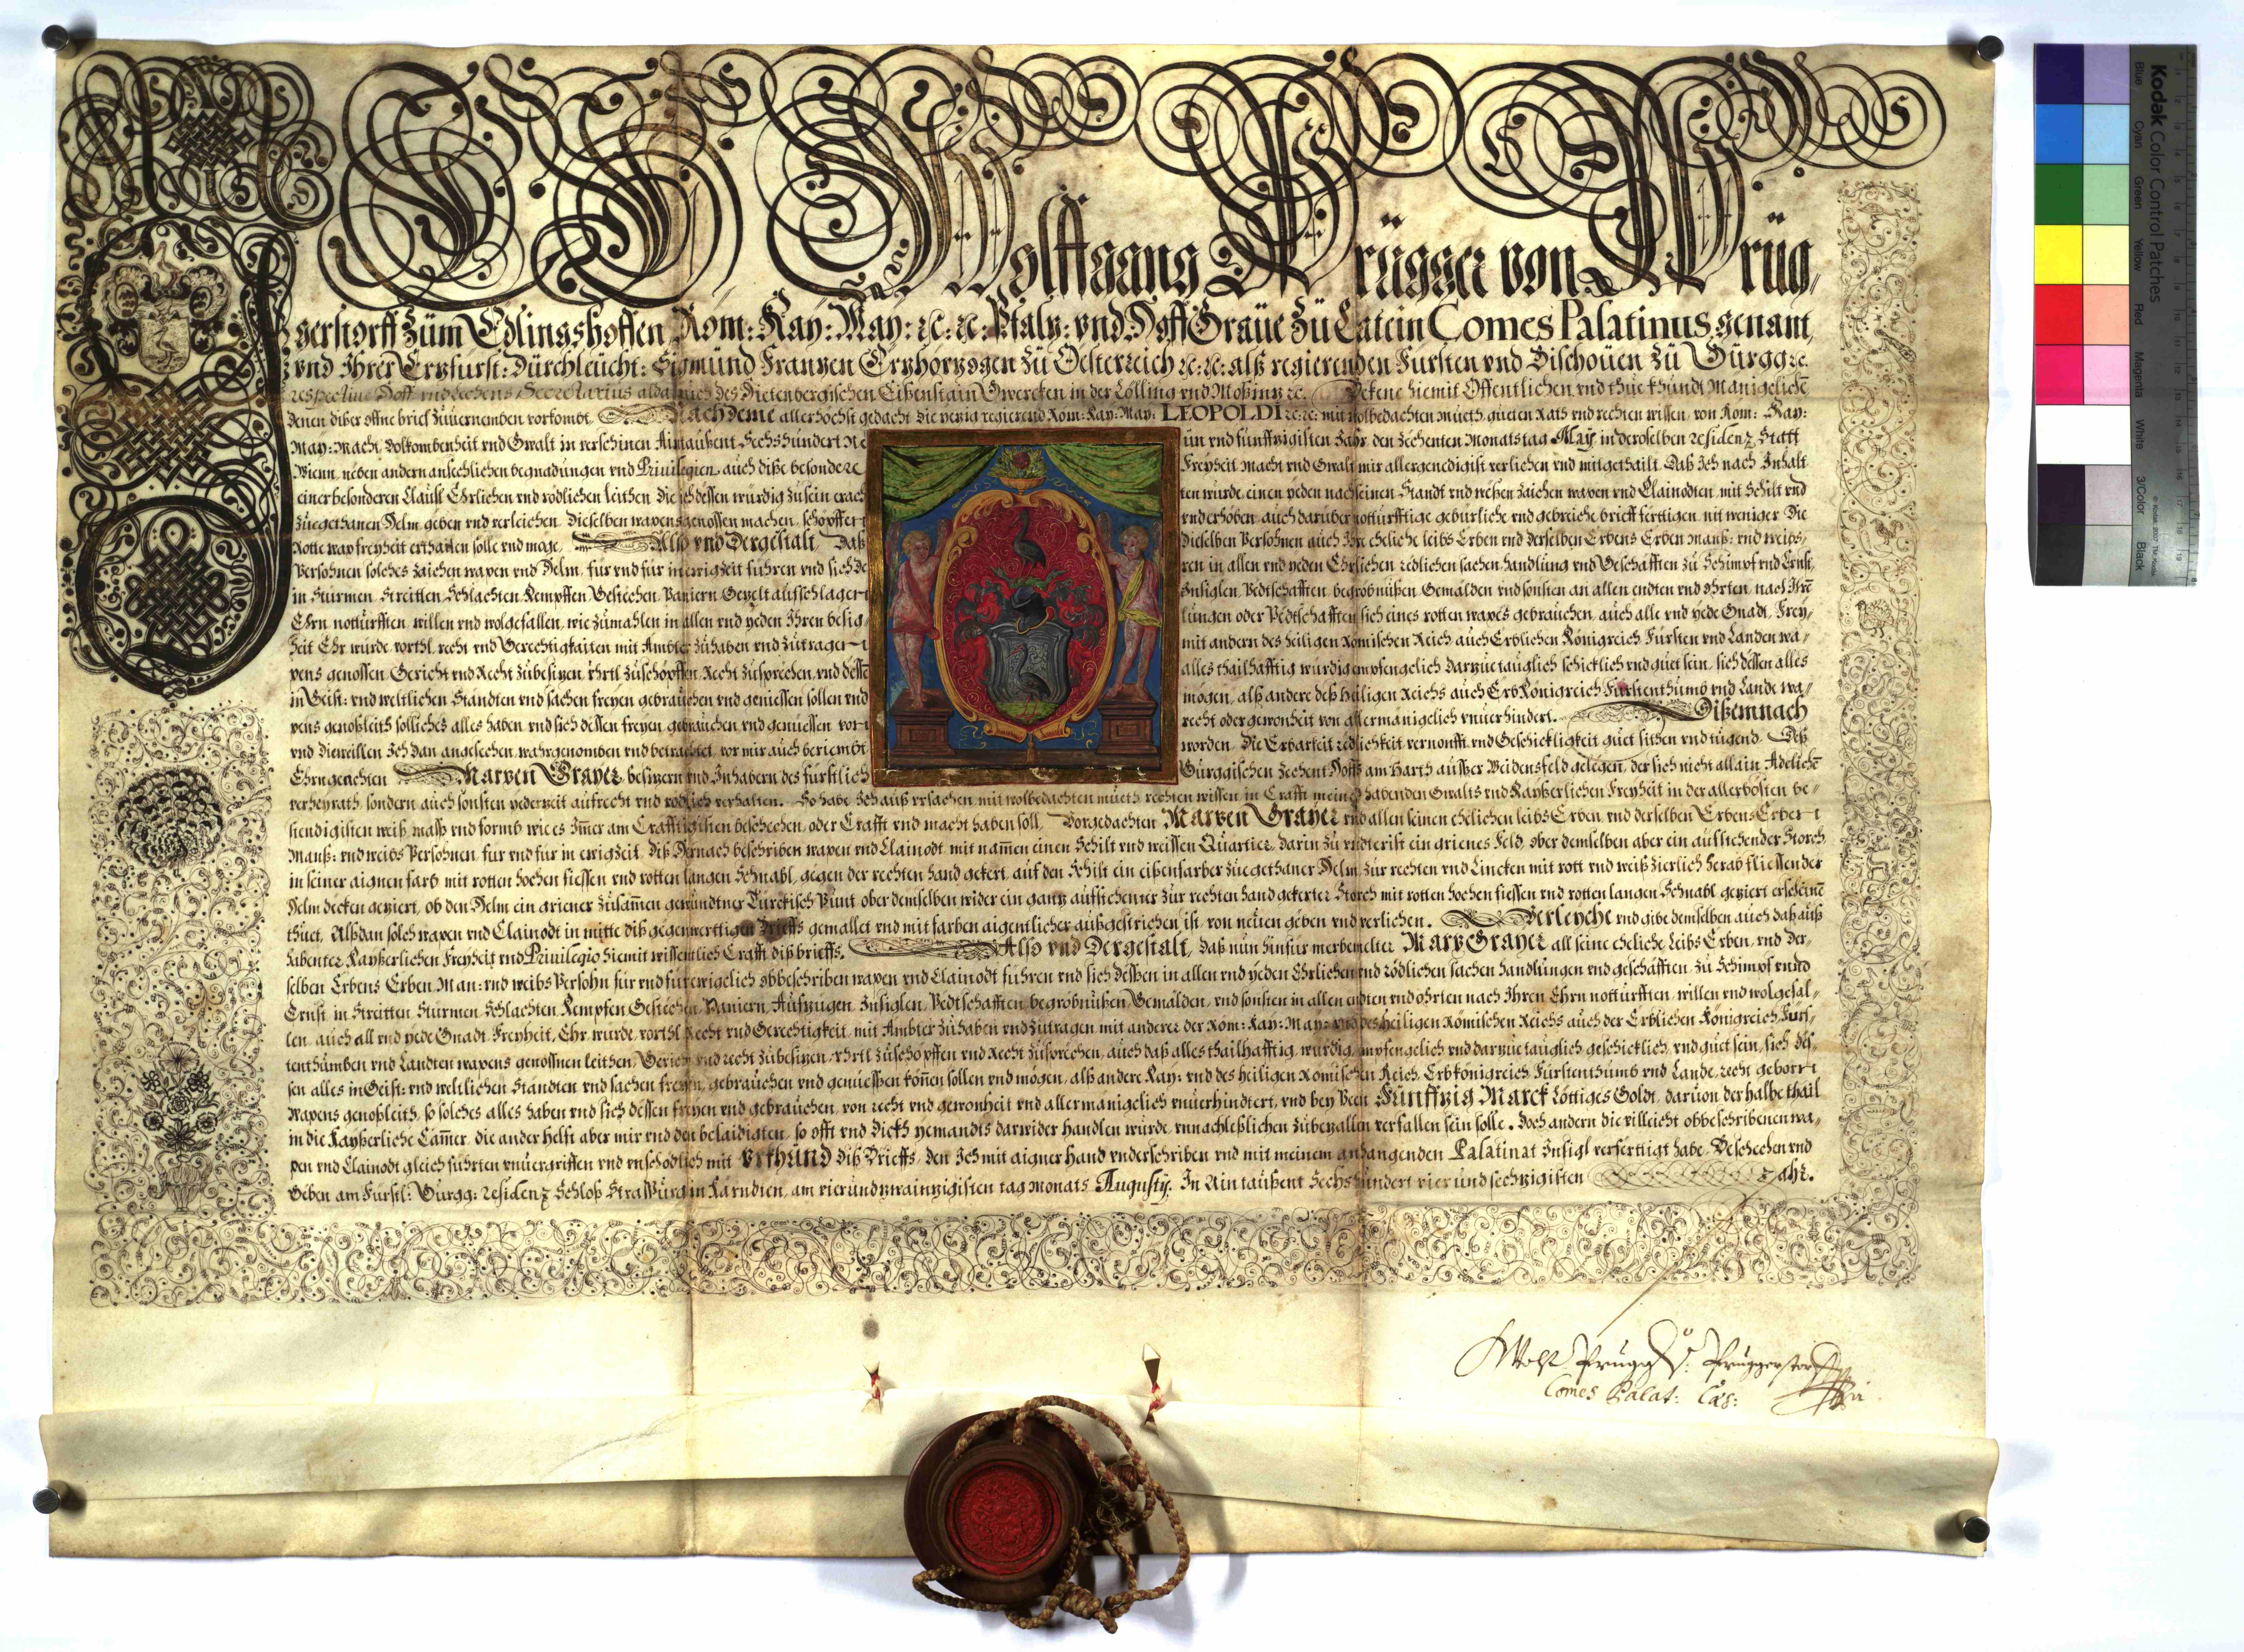 ICH Wolffgang Prügger von Prüg,
gerstorff zům Edlingshoffen Röm: Kay: May: ꝛc: ꝛc: Pfalz: vnd Hoff Graüe Zů Latein Comes Palatinus genant,
vnd Ihrer Erzfürst: Dürchleücht: Sigmünd Franzen Erzhorzogen Zü Oesterreich ꝛc: ꝛc: alß regierenden Fursten vnd Bischoüen Zü Gürgg ꝛc.
respectiue Hoff vnd Lechens Secretarius aldа des Dietenbergischen Eißenstain Gwercken in der Lölling vnd Moßinz ꝛc. Bekene hiemit Offentlichen vnd thüe khundt Manigeliche
denen dißer offne brief züuernemben vorkombt. Nachdeme allerhöchst gedacht die yezig regierend Röm: Kay: May: LEOPOLDI ꝛc: ꝛc: mit wolbedachten müeth güeten Rats vnd rechten wissen, von Röm: Kay:
May: Macht, Volkombenheit vnd Gwalt in verschinen Aintaüßent Sechshündert Neün vnd fünffzigisten Jahr, den Zechenten Monatstag May in deroselben residenz Statt
Wienn, neben andern ansechlichen begnadüngen vnd Priuilegien auch diße besondere Freyheit Macht vnd Gwalt mir allergenedigist verlichen vnd mitgethailt. Daß Ich nach Inhalt
einer besonderen Claüsl Ehrlichen vnd rödlichen leithen, die ich dessen würdig zü sein erachten würde, einen yeden nach seinen Standt vnd weßen zaichen wapen vnd Clainodten, mit Schilt vnd
züegethanen Helm, geben vnd verleichen, Dieselben wapens genossen machen, schöpffen vnd erhöben, auch darüber notturfftige gebürliche vnd gebreiche brieff fertigen, nit weniger die
Rotte wax freyheit erthailen solle vnd möge, Also vnd Dergestalt, Daß dieselben Persohnen auch Ihre eheliche leibs Erben vnd derselben Erbens Erben Manß: vnd weibs,
Persohnen solches zaichen wapen vnd Helm, für vnd für in ewigzeit führen vnd sich deren in allen vnd yeden Ehrlichen redlichen sachen handlüng vnd Geschäfften zü Schimpf vnd Ernst,
in Stürmen, Streitten, Schlachten, Kempffen, Gestechen, Paniern, Gezelt aüfschlagen Insiglen, Pedtschafften, begröbnüßen, Gemälden vnd sonsten an allen endten vnd ohrten, nach Ihre
Ehrn notürfften, willen vnd wolgefallen, wie zümahlen in allen vnd yeden Ihren besiglüngen oder Pedtschafften sich eines rotten waxes gebraüchen, auch alle vnd yede Gnadt, Frey,
heit Ehr, würde, vorthl, recht vnd Gerechtigkaiten mit Ambter zühaben vnd zütragen mit andern des heiligen Römischen Reich auch Erblichen Königreich Fürsten vnd Landen wa,
pens genossen Gericht vnd Recht zübesizen, vhrtl züschöpffen, Recht züsprechen, vnd desse alles thailhafftig würdig empfengelich darzüe taüglich schicklich vnd güet sein, sich dessen alles
in Geist: vnd weltlichen Ständten vnd sachen freyen gebraüchen vnd geniessen sollen vnd mögen, alß andere deß heiligen Reichs auch Erb Königreich Fürstenthümb vnd Lande wa,
pens genoßleith solliches alles haben vnd sich dessen freyen, gebraüchen vnd geniessen, von recht oder gewonheit von allermänigelich vnuerhindert. Dißemnach
vnd dieweillen Ich dan angesechen, wahrgenomben vnd betrachtet, vor mir auch beriembt worden, die Erbarkeit redlichkeit vernonfft vnd Geschickligkeit güet sithen vnd tügend. Deß
Ehrngeachten Marxen Grayer besizern vnd Inhabern des fürstlich Gürggischen Zechent Hoffs am Harth aüsser Weidensfeld gelegen, der sich nicht allain Adeliche
verheyrath, sondern auch sonsten yederzeit aufrecht vnd rödlich verhalten. So habe Ich auß vrsachen, mit wolbedachten müeth rechten wissen, in Crafft meines habenden Gwalts vnd Kayßerlichen Freyheit in der allerbösten be,
stendigisten weiß, mass vnd formb wie es Im̄er am Crafftigisten beschechen, oder Crafft vnd macht haben soll, Vorgedachten Marxen Grayer vnd allen seinen ehelichen leibs Erben, vnd derselben Erbens Erben
Manß: vnd weibs Persohnen, für vnd für in ewigzeit, diß Hernach beschriben wapen vnd Clainodt, mit nam̄en einen Schilt vnd weissen Quartier, darin zü vndterist ein grienes Feld, ober demselben aber ein aüfstehender Storch
in seiner aignen farb mit rotten hochen fiessen vnd rotten langen Schnabl, gegen der rechten hand gekert, auf den Schilt ein eißenfarber züegethaner Helm, zür rechten vnd Lincken mit rott vnd weiß zierlich herab fliessender
Helm decken geziert, ob den Helm ein griener züsam̄en gewündtner Türckisch Pünt ober demselben wider ein ganz aüfstehenter zür rechten hand gekerter Storch mit rotten hochen fiessen vnd rotten langen Schnabl, geziert erscheine
thüet, Alßdan solch wapen vnd Clainodt in mitte diß gegenwerttigen Brieffs gemallet vnd mit farben aigentlicher außgestrichen ist, von neüen geben vnd verlichen. Verleyche vnd gibe demselben auch daß aüß
habenter Kayßerlichen Freyheit vnd Priuilegio hiemit wissentlich Crafft diß brieffs. Also vnd Dergestalt, daß nün hinfür merbemelter Marx Grayer all seine eheliche Leibs Erben, vnd der,
selben Erbens Erben, Man: vnd weibs Persohn für vnd für ewigelich obbeschriben wapen vnd Clainodt führen vnd sich deßsen in allen vnd yeden Ehrlichen vnd rödlichen sachen handlüngen vnd geschäfften, zü Schimpf vnnd
Ernst, in Streitten, Stürmen, Schlachten, Kempfen, Gestechen, Paniern, Aüfzügen, Insiglen, Pedtschafften, begröbnüßen, Gemälden, vnd sonsten in allen endten vnd ohrten nach Ihren Ehrn nottürfften, willen vnd wolgefal,
len, auch all vnd yede Gnadt, Freyheit, Ehr, würde, vorthl, Recht vnd Gerechtigkeit, mit Ambter zühaben vnd zütragen mit anderer der Röm: Kay: May: vnd des heiligen Römischen Reichs auch der Erblichen Königreich Fürs,
tenthümben vnd Landten wapens genossnen leithen, Gericht vnd recht zübesizen, vhrtl züschöpffen vnd Recht züsprechen, auch daß alles thailhafftig, würdig, empfengelich vnd darzüe taüglich geschicklich, vnd güet sein, sich des,
sen alles in Geist: vnd weltlichen Ständten vnd sachen freyen, gebraüchen vnd genüeßen kön̄en sollen vnd mögen, alß andere Kay: vnd des heiligen Römischen Reich, Erbkönigreich Fürstenthümb vnd Lande, recht geborn
Wapens genoßleith, so solches alles haben vnd sich dessen freyen vnd gebraüchen, von recht vnd gewonheit vnd allermanigelich vnuerhindtert, vnd bey Peen Fünffzig Marck Löttiges Goldt, daruon der halbe thail
in die Kayßerliche Cam̄er, die ander helft aber mir vnd den belaidigten, so offt vnd dickh yemandts darwider handlen würde, vnnachleßlichen zübezallen verfallen sein solle. Doch andern die villeicht obbeschribenen wa,
pen vnd Clainodt gleich führten vnuergriffen vnd vnschödlich mit Vrkhünd diß Brieffs, den Ich mit aigner Hand vnderschriben vnd mit meinem anhangenden Palatinat Insigl verferttigt habe. Beschechen vnd
Geben am Fürstl: Gürgg: residenz Schloß Strassbürg in Kärndten, am vieründzwainzigisten tag monats Augusty. In Ain taüßent Sechshündert vier und sechzigisten Jahr.
Wolf Prugg V: Pruggerstorff
Comes Palat: Cæs:
Kodak Color Control Patches
Blue Cyan Green Yellow Red Magenta White 3/Color Black
© Kodak, 2007 TM: Kodak